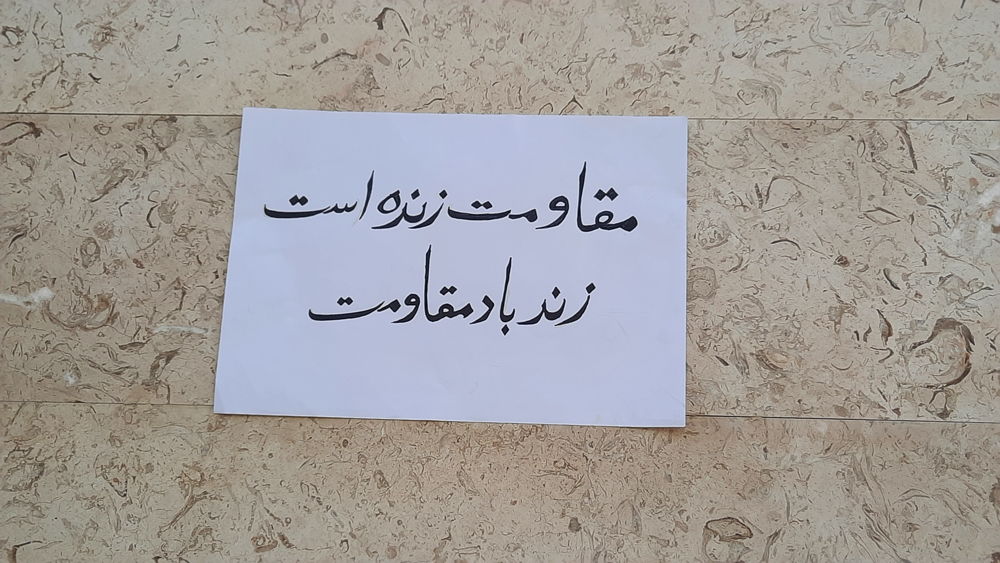 مقاومت زنده است
زند باد مقاومت